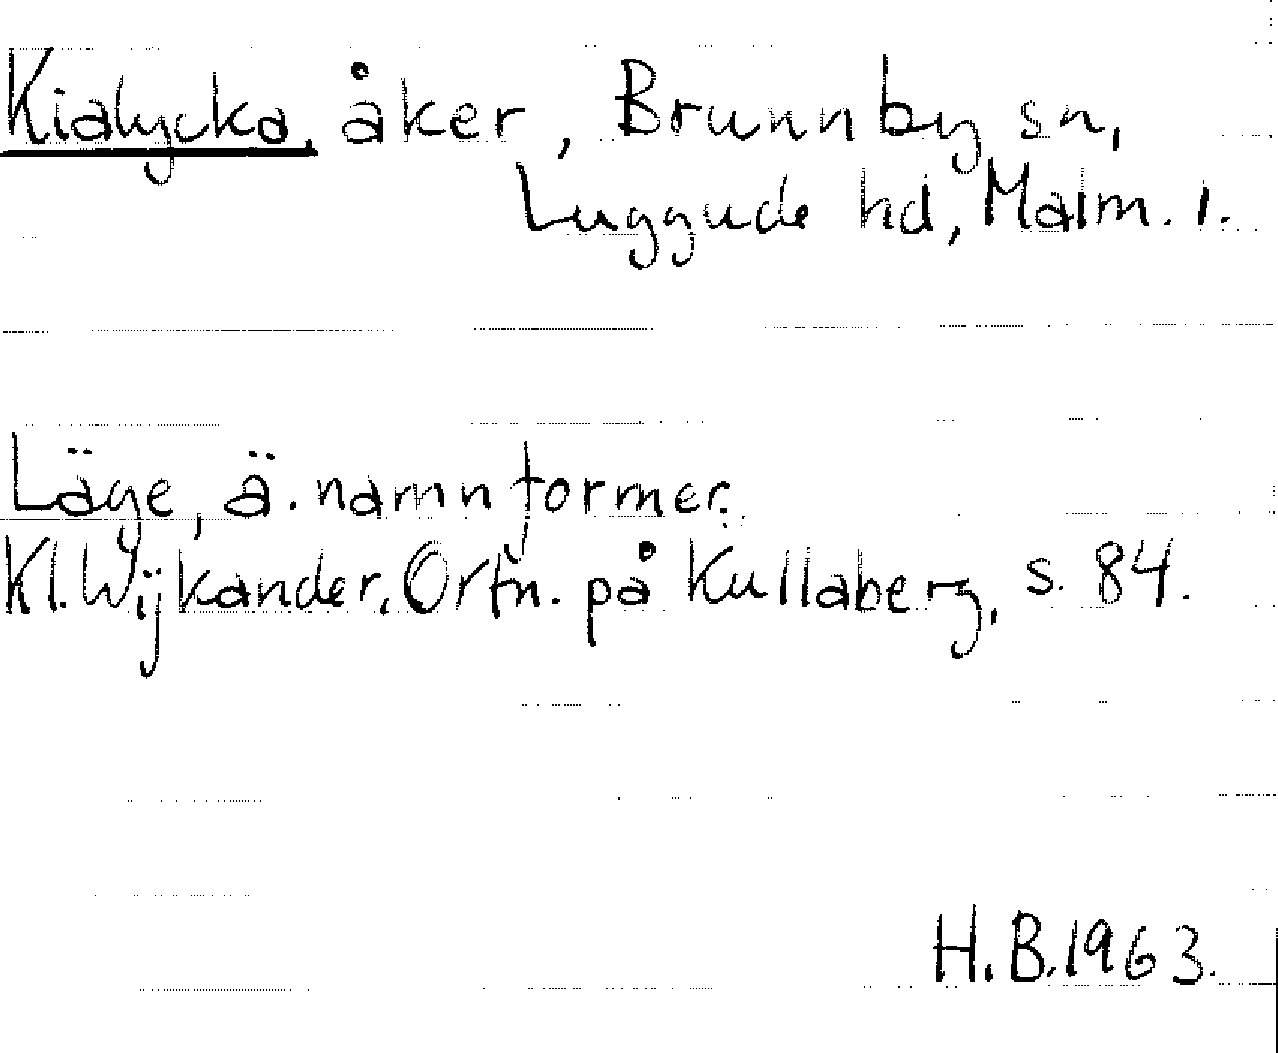 Kialycka, åker, Brunnby sn,
Luggude hd, Malm. l.
Läge, ä. namnformer.
Kl. Wijkander, Ortn. på Kullaberg, s. 84.
H.B. 1963.